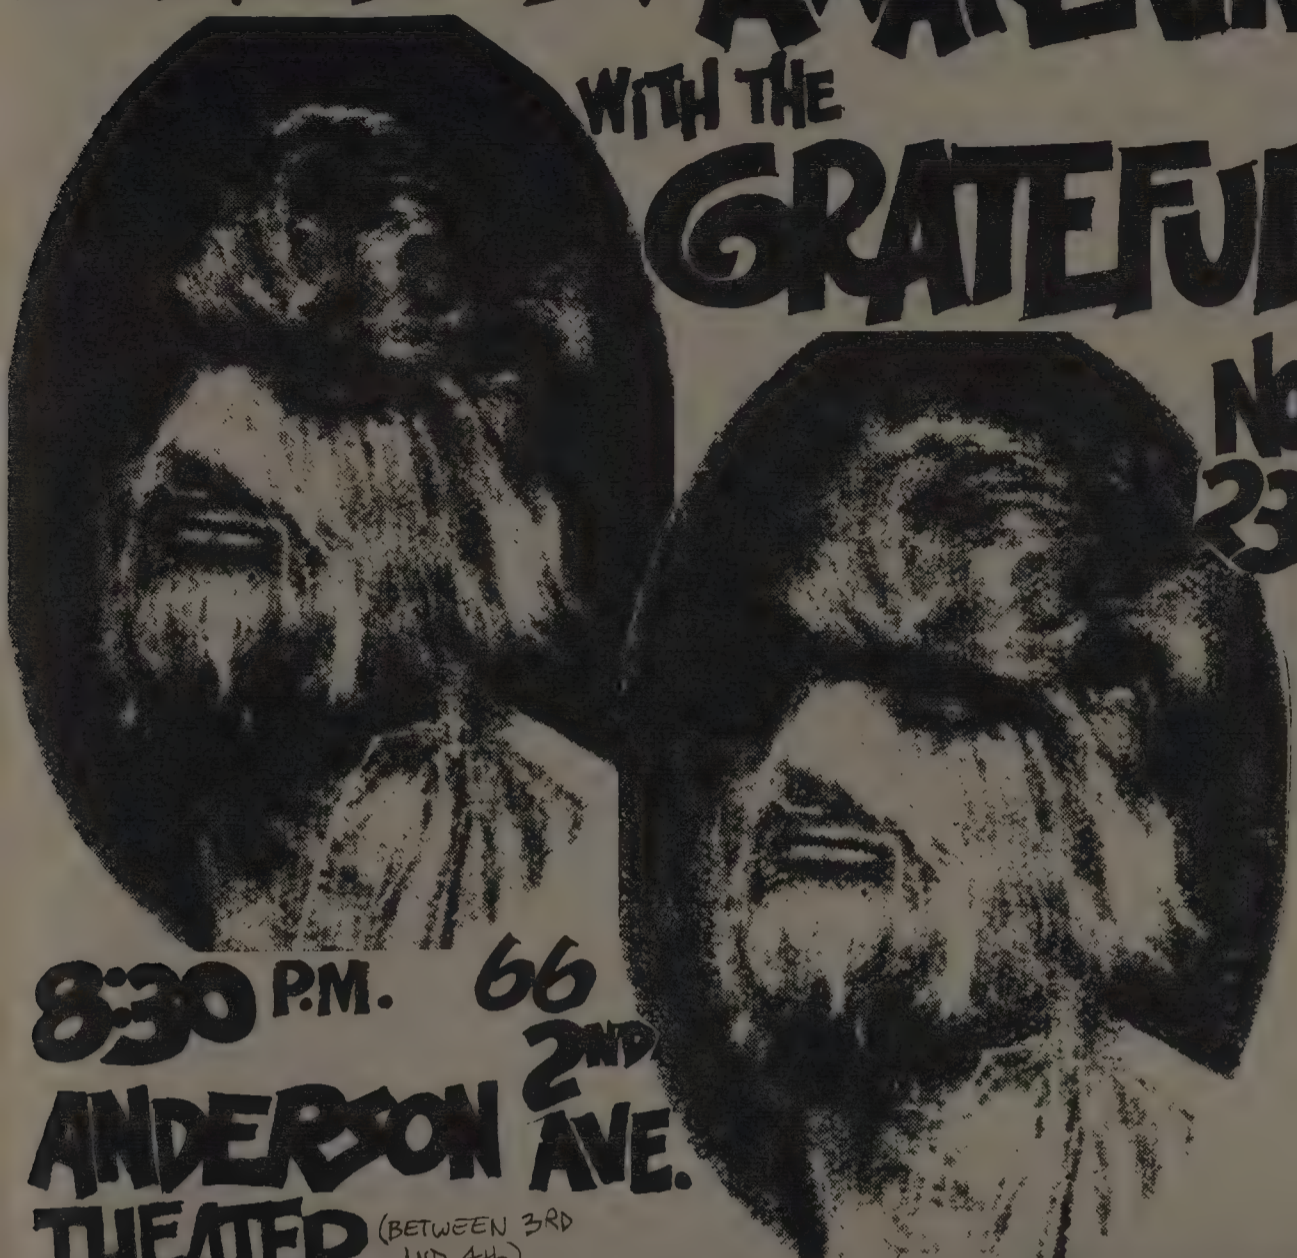 WITH THE
GRATEFUL
23
8:30 P.M.
66
2ND
AVE.
ANDERSON
THEATER
(BETWEEN 3RD
AND 4th)